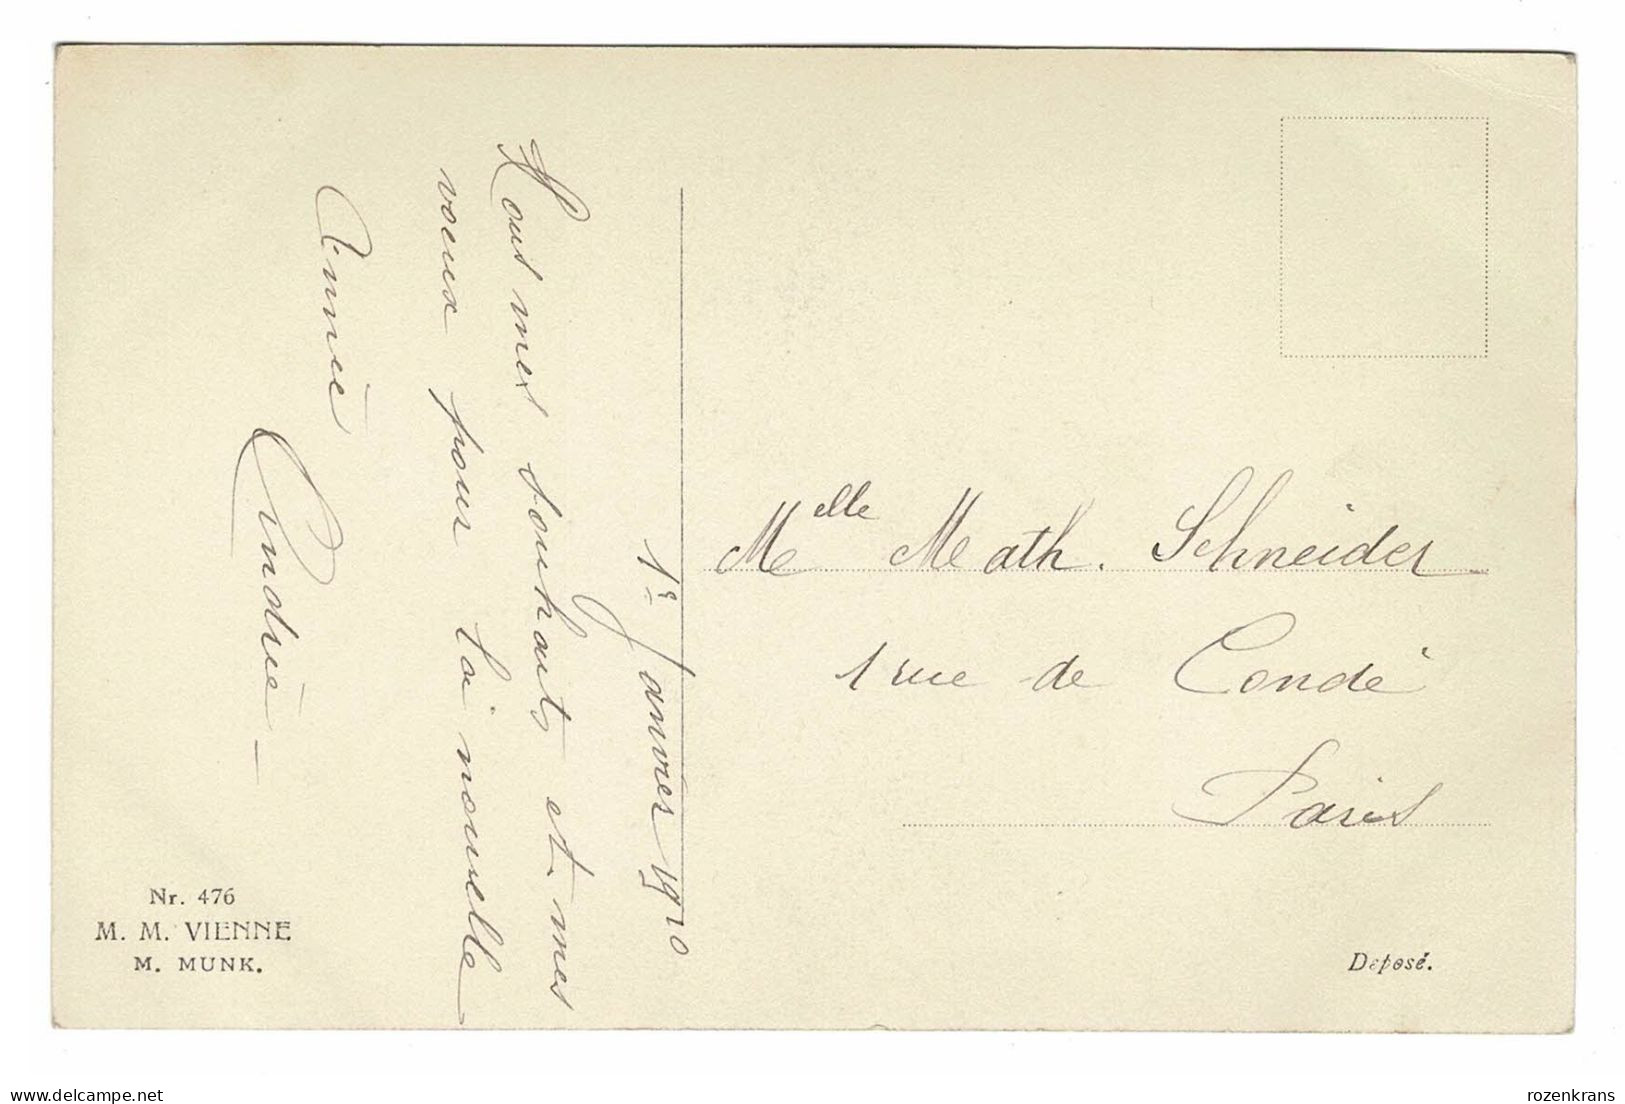 1er Janvier 1910
Tous mes souhaits et mes
voeux pour la nouvelle
Année
Andrée –
Melle Math. Schneider
1 rue de Condé
Paris
Nr. 476
M. M. VIENNE
M. MUNK.
Deposé.
delcampe.net
rozenkrans